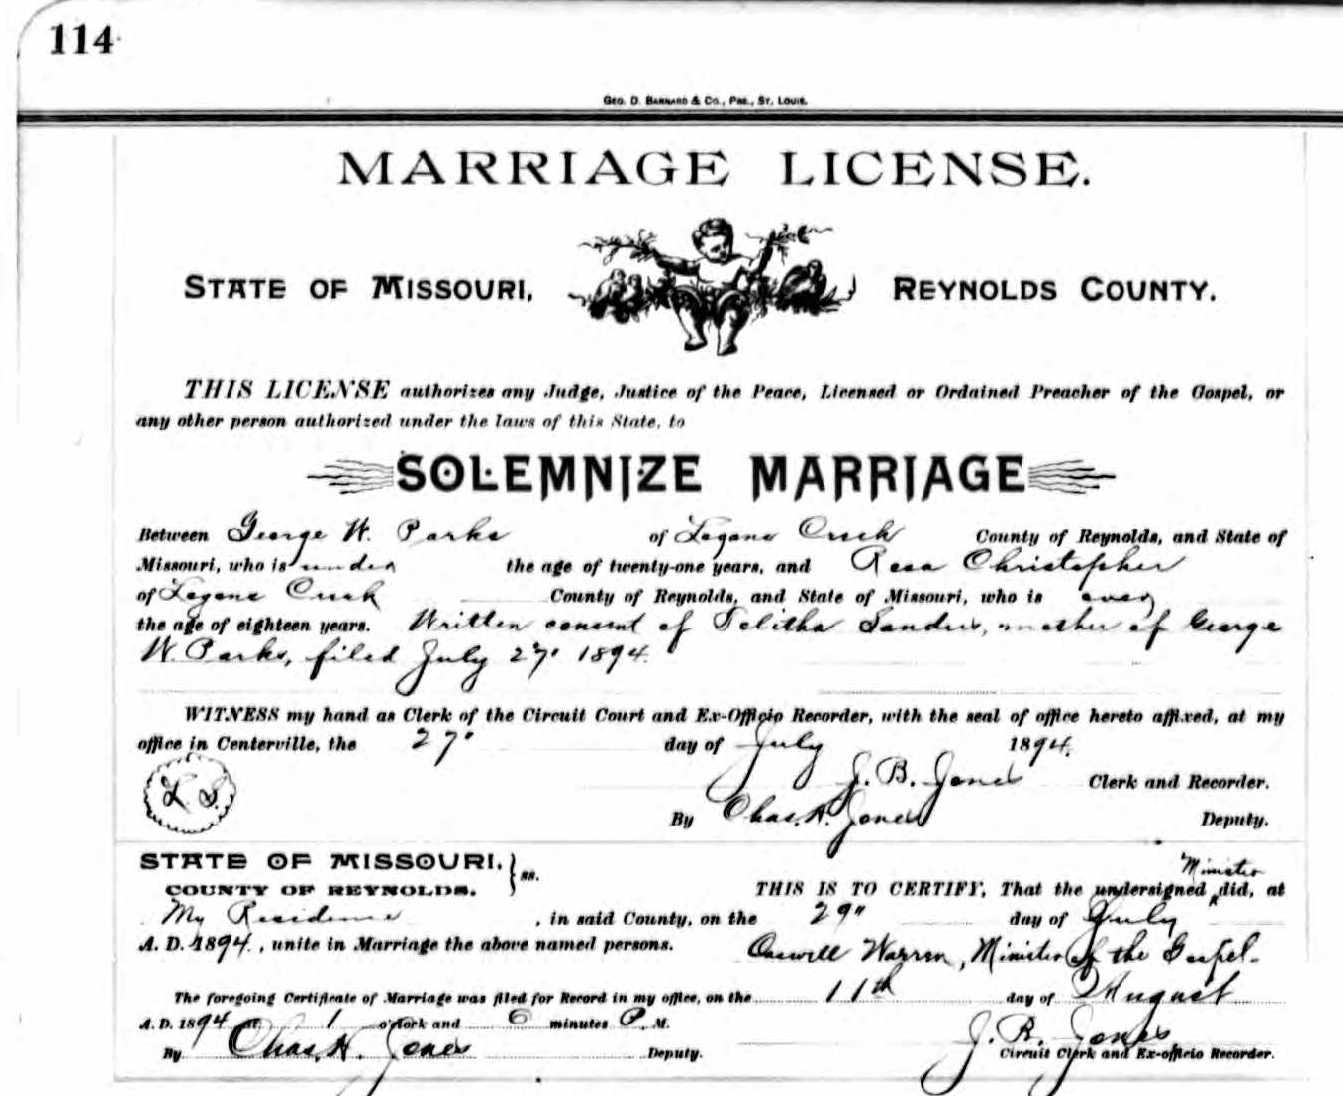 114
GEO. D. BARNARD & CO., PRS., ST. LOUIS.
MARRIAGE LICENSE.
STATE OF MISSOURI, REYNOLDS COUNTY.
THIS LICENSE authorizes any Judge, Justice of the Peace, Licensed or Ordained Preacher of the Gospel, or
any other person authorized under the laws of this State, to
SOLEMNIZE MARRIAGE
Between George W. Parks of Logans Creek County of Reynolds, and State of
Missouri, who is under the age of twenty-one years, and Rosa Christopher
of Logans Creek County of Reynolds, and State of Missouri, who is over
the age of eighteen years. Written consent of Telitha Sanders, mother of George
W. Parks, filed July 27" 1894.
WITNESS my hand as Clerk of the Circuit Court and Ex-Officio Recorder, with the seal of office hereto affixed, at my
office in Centerville, the 27" day of July 1894.
L. S. J. B. Jones Clerk and Recorder.
By Chas. H. Jones Deputy.
STATE OF MISSOURI, } ss.
Minister
COUNTY OF REYNOLDS. THIS IS TO CERTIFY, That the undersigned did, at
My Residence, in said County, on the 29" day of July
A. D. 1894, unite in Marriage the above named persons. Caswell Warren, Minister of the Gospel.
The foregoing Certificate of Marriage was filed for Record in my office, on the 11th day of August
A. D. 1894 at 1 o'clock and 6 minutes P. M. J. B. Jones
By Chas. H. Jones Deputy. Circuit Clerk and Ex-officio Recorder.